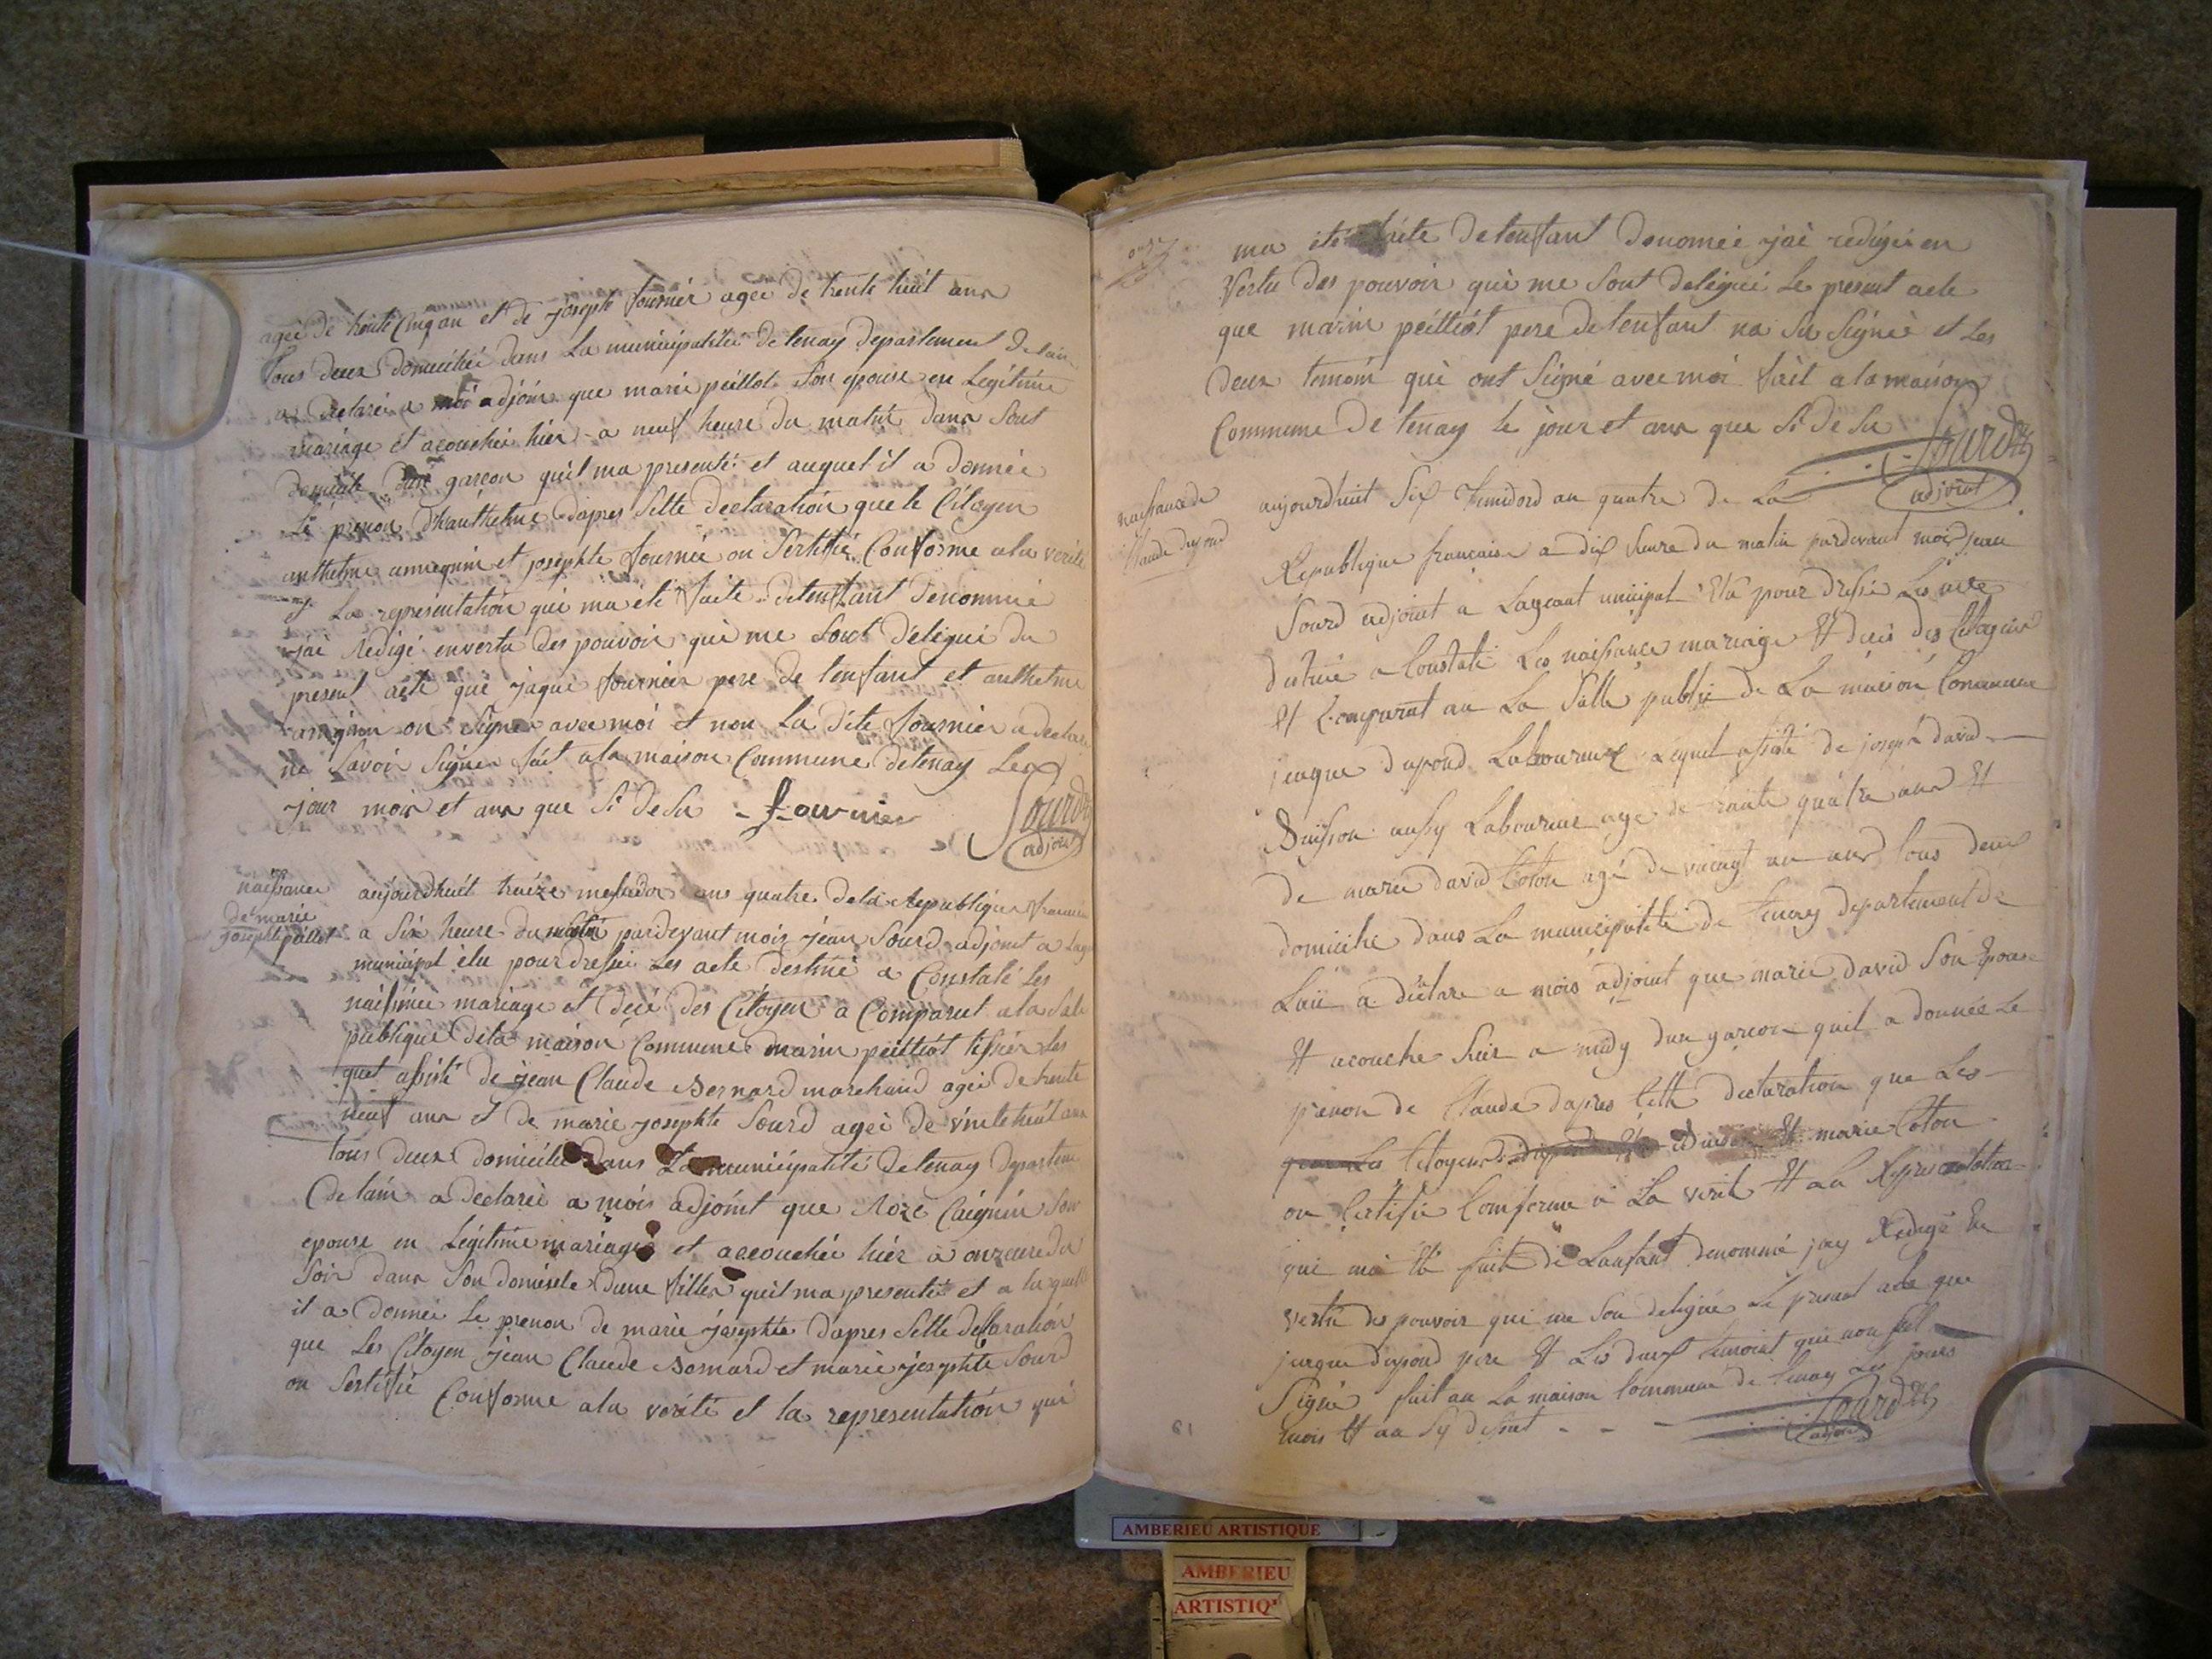 agée de trente Cinq an et de joseph fournier agee de trente huit ans
tous deux domicilié dans la municipalitée de tenay departement de lain
a declaré a moi adjoin que marie peillot Son epouse en Legitime
mariage et acouchée hier a neuf heure du matin dans Sont
domicile dun garcon quil ma presenté et auquel il a donnée
Le prenon d'hanthelme dapres Sette declaration que le Citoyen
anthelme et josephte fournier on Sertifié Conforme ala verité
et La representation qui ma été faite de tenfant denommé
jai Redigé envertu des pouvoir qui me Sont délégué du
present acte que jaque fournier pere de l'enfant et anthelme
on Signé avec moi et non La dite fournier a declaré
ne Savoir Signer fait ala maison Commune detenay Le
jour mois et ans que Si de Su fournier Sourd
adjoint
naissance
de marie
josephte peillot
aujourdhuit traize mesidor ans quatre dela Republique francaise
a Six heure du matin pardevant mois jean Sourd adjoint a lag
municipal élu pour dressé Les acte destiné a Constaté Les
naissance mariage et décé des Citoyen a Comparut ala Sale
publique dela maison Commune marin peilliot tissier Les
quel assisté de jean Claude Bernard marchand agée de trente
neuf ans et de marie josephte Sourd agée de vinte huit ans
tous deux domicilié dans La municipalité detenay departeme
de lain a declarée a mois adjoint que Roze Caignin Son
epouse en Légitime mariage et accouchée hier a onze ure du
Soir dans Son domicile dune fille quil ma presentée et a laquelle
il a donnée Le prenon de marie josephte dapres Sette declaration
que Les Citoyen jean Claude Bernard et marie josephte Sourd
on Sertifié Conforme ala verité et la representation qui
ma été faite de tenfant denomée jai redigée en
Vertu des pouvoir qui me Sont delégué Le present acte
que marin peilliot pere de tenfant na Su Signé et Les
deux temoin qui ont Signé avec moi fait a la maison
Commune de tenay le jour et ans que Si de Su
Sourd
adjoint
naissance de
Claude dupond
aujourdhuit Six termidord an quatre de La
Republique francaise a dix heure du matin pardevant moi jean
Sourd adjoint a Lageant unicipal Elu pour dressé Les acte
destiné a Constaté Les naissance mariage Et décés des Citoyens
Et Comparut au La Salle publie de La maison Commune
jacque dupond Laboureur Lequel assisté de joseph david
Buisson aussy Laboureur agé de trante quatre ans Et
de marie david Coton agé de vaingt un ans tous deux
domicilie dans La municipalité de tenay departement de
Lain a déclare a mois adjoint que marie david Son Epouse
Et acouche hier a midy dun garcon quil a donnée Le
prenon de Claude dapres Cette declaration que Les
que Les Citoyens Buisson Et marie Coton
on Certifié Comforme a La verité Et a La Representation
qui ma été fait de Lanfant denommé jay Redigé En
vertu des pouvoir qui me Son delegué Le present acte que
jacque dupond pere Et Les deux temoint qui non Sut
Signé fait au La maison Commune de tenay Les jours
mois Et an Sy dessut
Sourd
adjoint
AMBERIEU ARTISTIQUE
AMBERIEU
ARTISTIQ